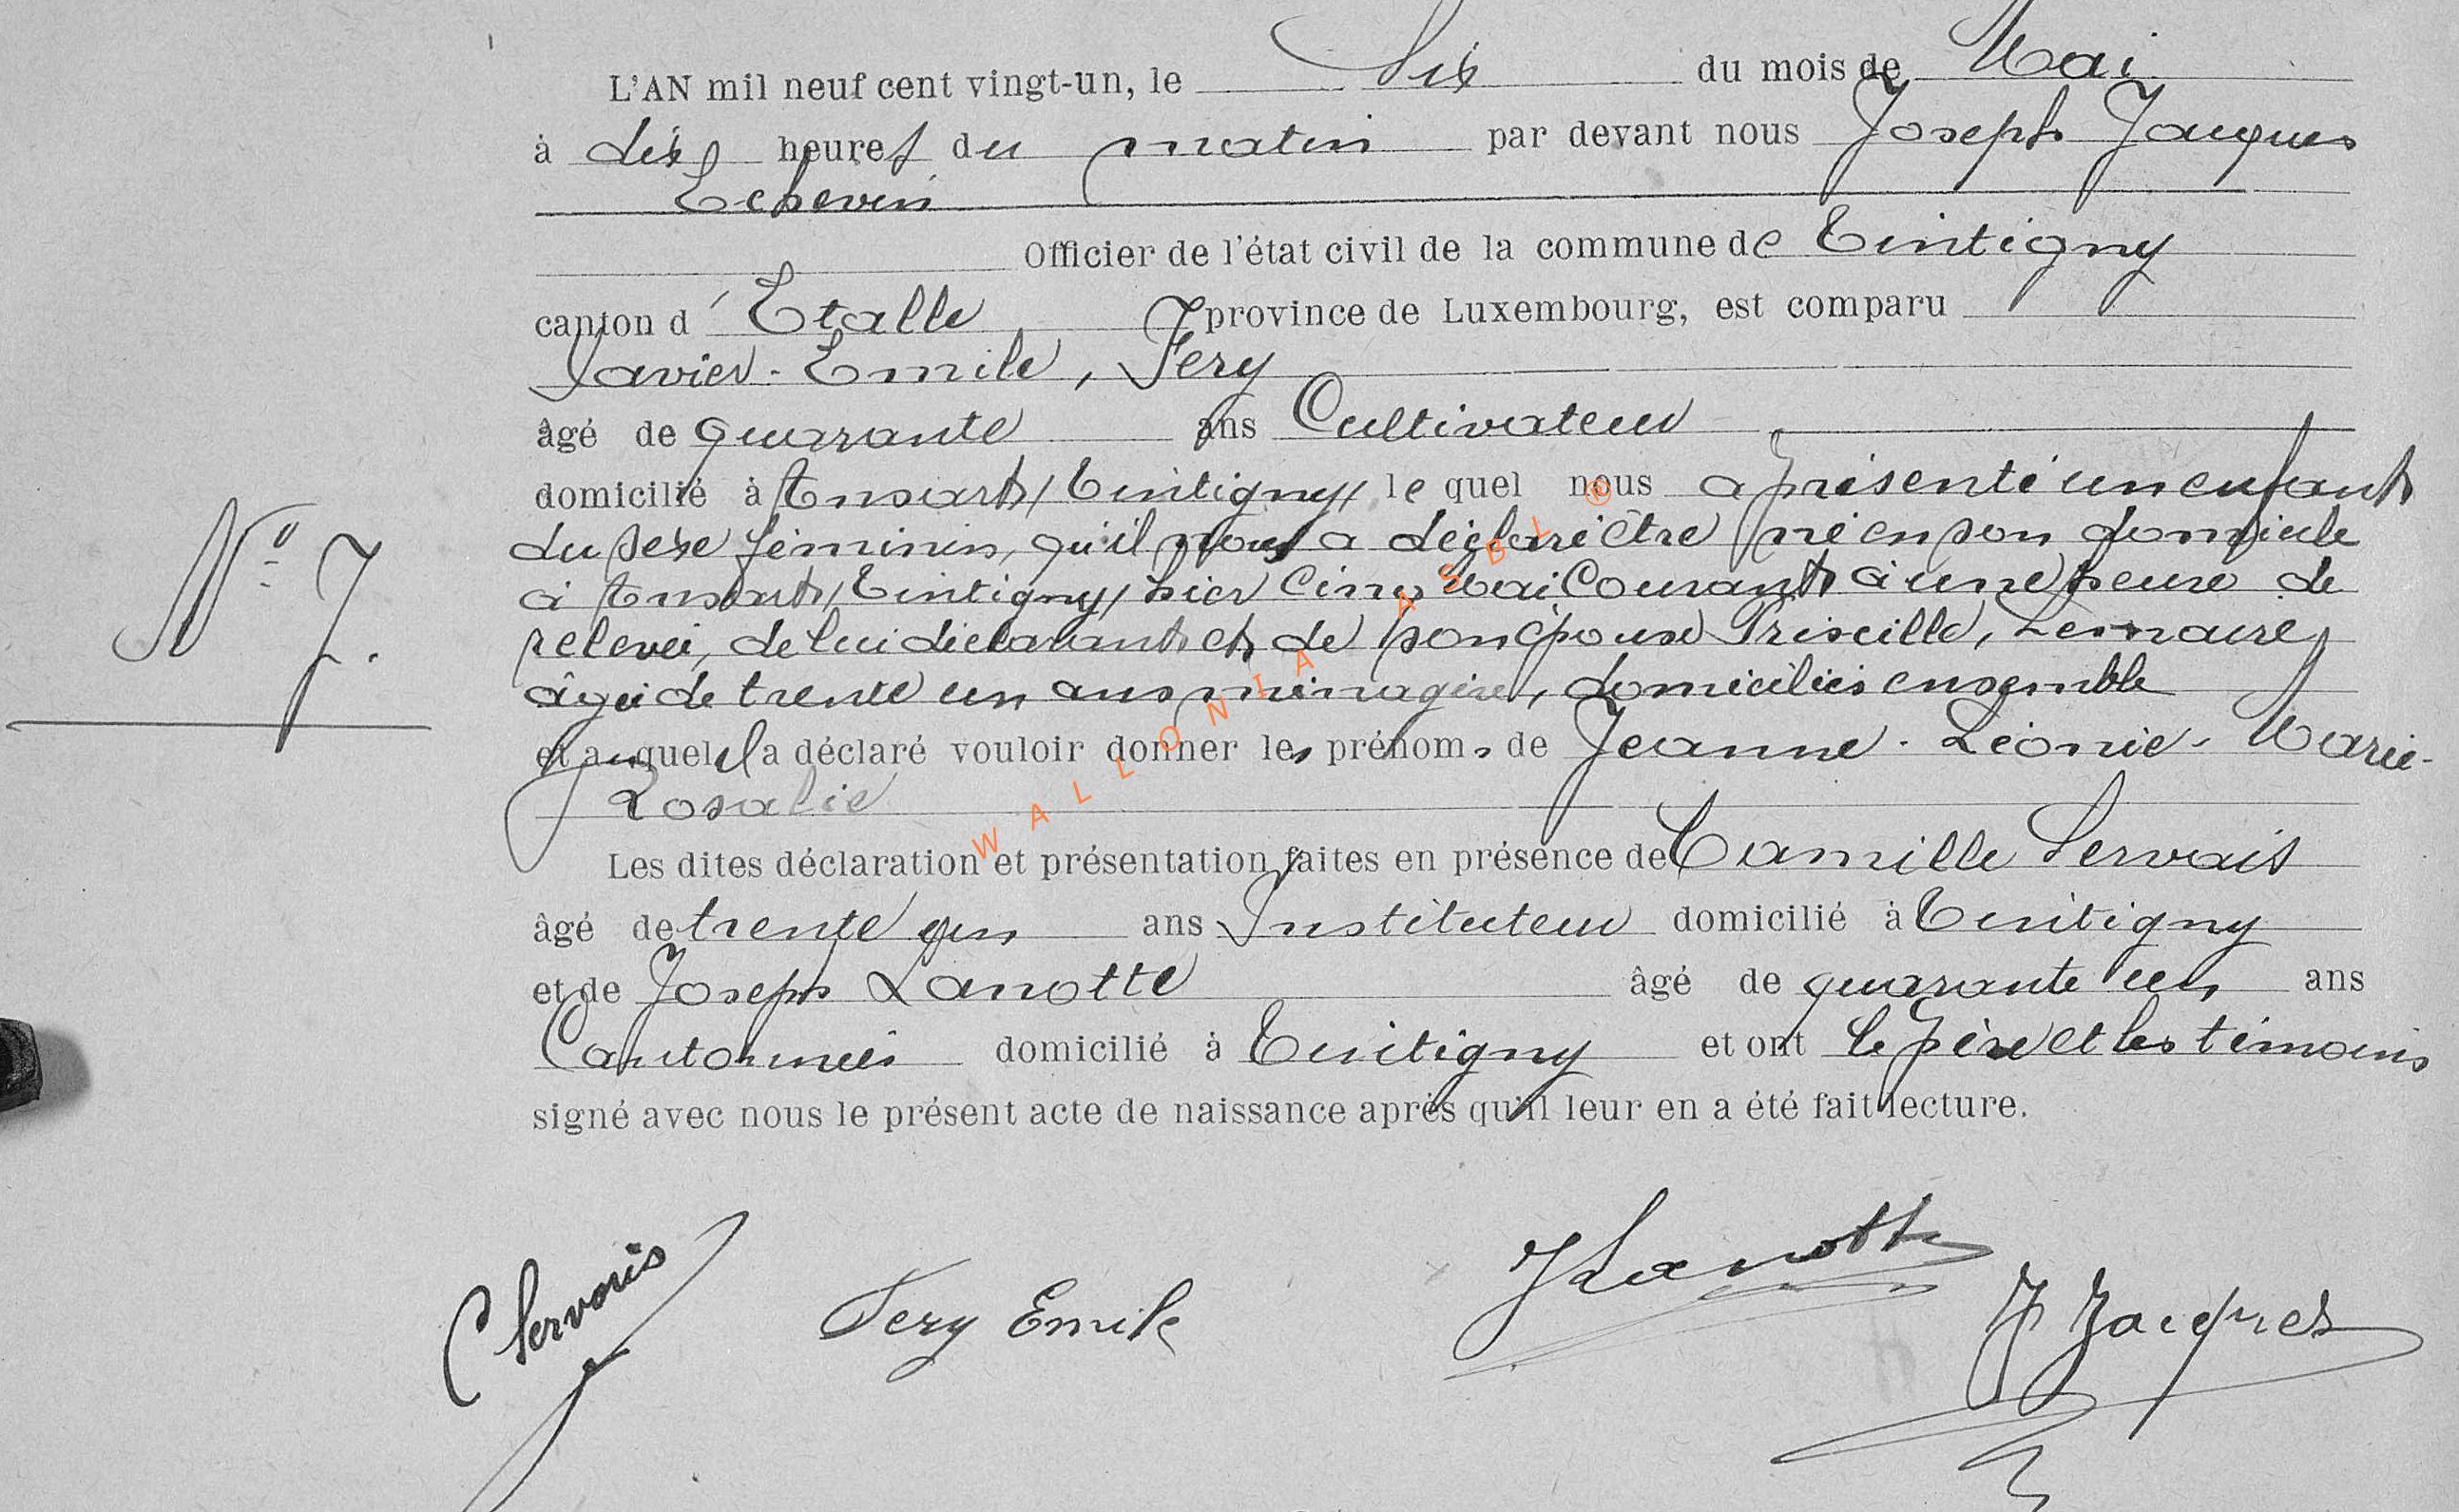 L'AN mil neuf cent vingt-un, le Six du mois de Mai
à dix heures du matin par devant nous Joseph Jacques
Echevin
Officier de l'état civil de la commune de Tintigny
canton d'Etalle province de Luxembourg, est comparu
Xavier-Emile, Fery
âgé de quarante ans Cultivateur
domicilié à Ansart, (Tintigny) lequel nous a présenté un enfant
du sexe féminin, qu'il nous a déclaré être né en son domicile
à Ansart (Tintigny) hier cinq Mai Courant à une heure de
relevée, de lui déclarant et de son épouse Priscille, Lemaire,
âgée de trente un ans ménagère, domiciliés ensemble
et auquel il a déclaré vouloir donner les prénoms de Jeanne-Léonie-Marie-
Rosalie
Les dites déclaration et présentation faites en présence de Camille Servais
âgé de trente un ans Instituteur domicilié à Tintigny
et de Joseph Lanotte âgé de quarante un ans
Cantonnier domicilié à Tintigny et ont le père et les témoins
signé avec nous le présent acte de naissance après qu'il leur en a été fait lecture.
N° 7.
C Servais
Fery Emile
J Lanotte
J Jacques
WALLONIA ASBL ®